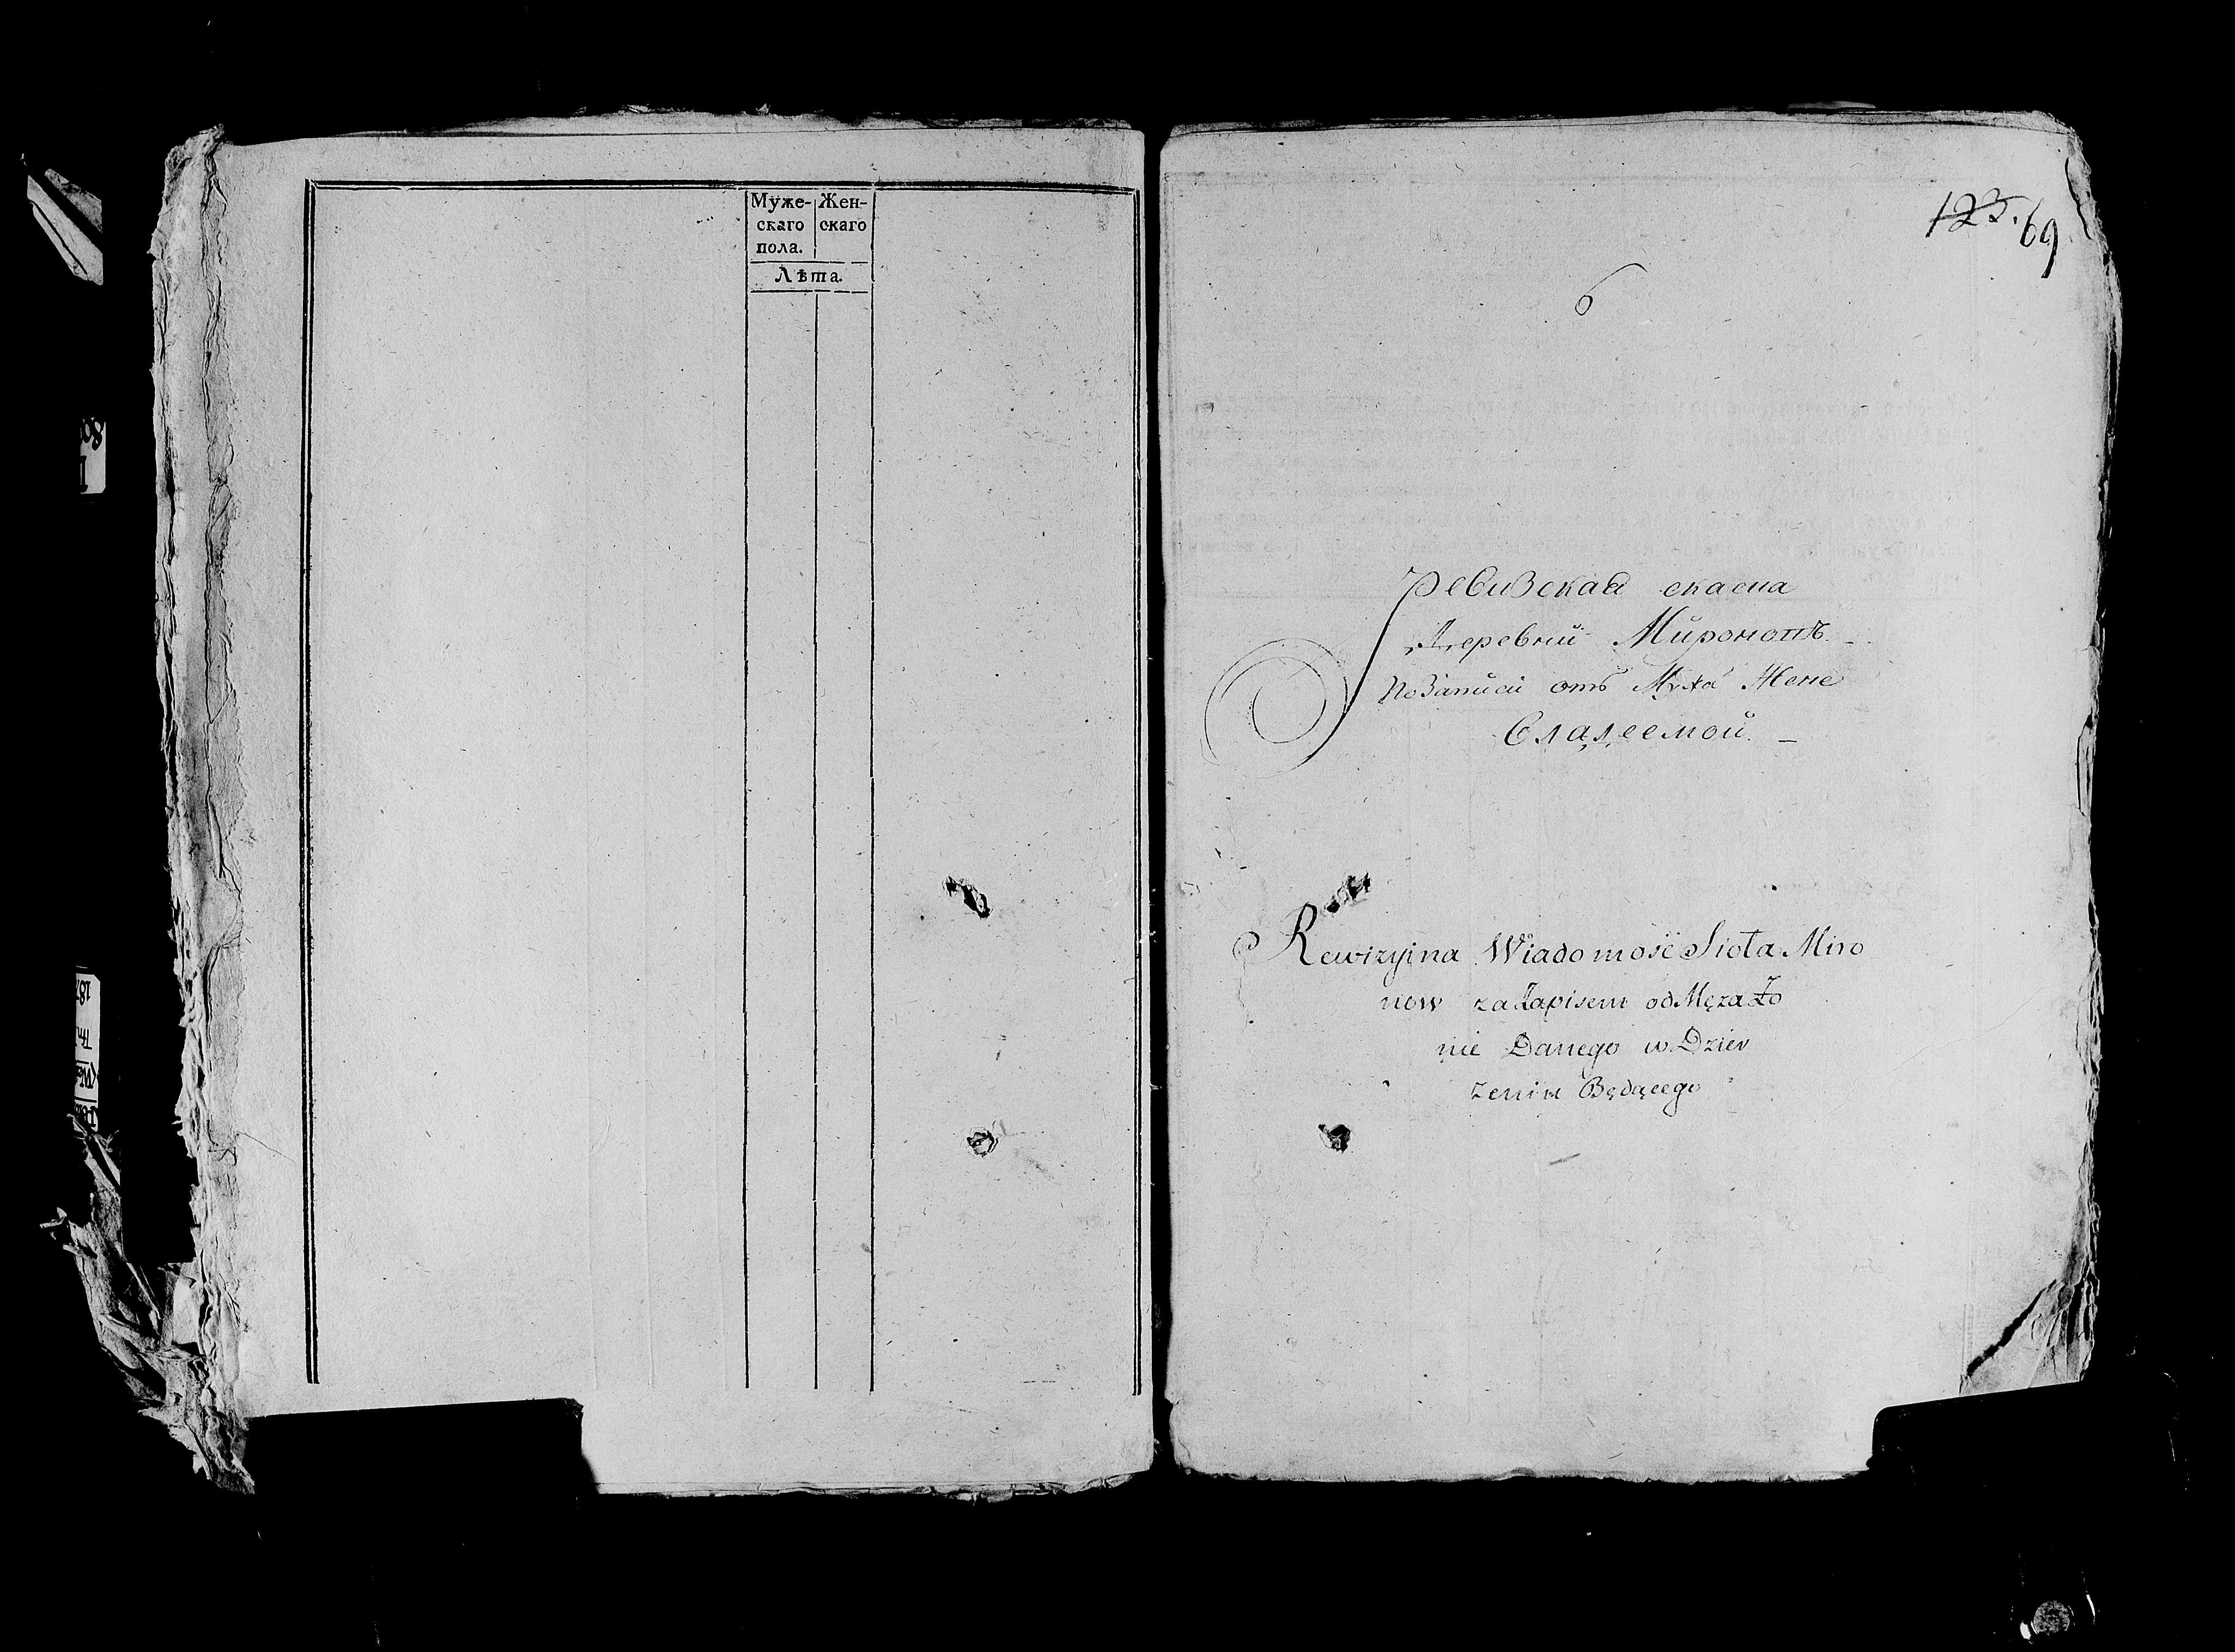 Муже- Жен-
скаго скаго
пола.
Лѣта.
123. 69
6
Ревизская скаска
Деревни Миронопъ
по Записи отъ Мужа Жене
владеемой.
Rewizyina Wiadomość Sioła Miro
now za Zapisem od Męza Zo
nie Danego w Dzier
zeniu Będącego